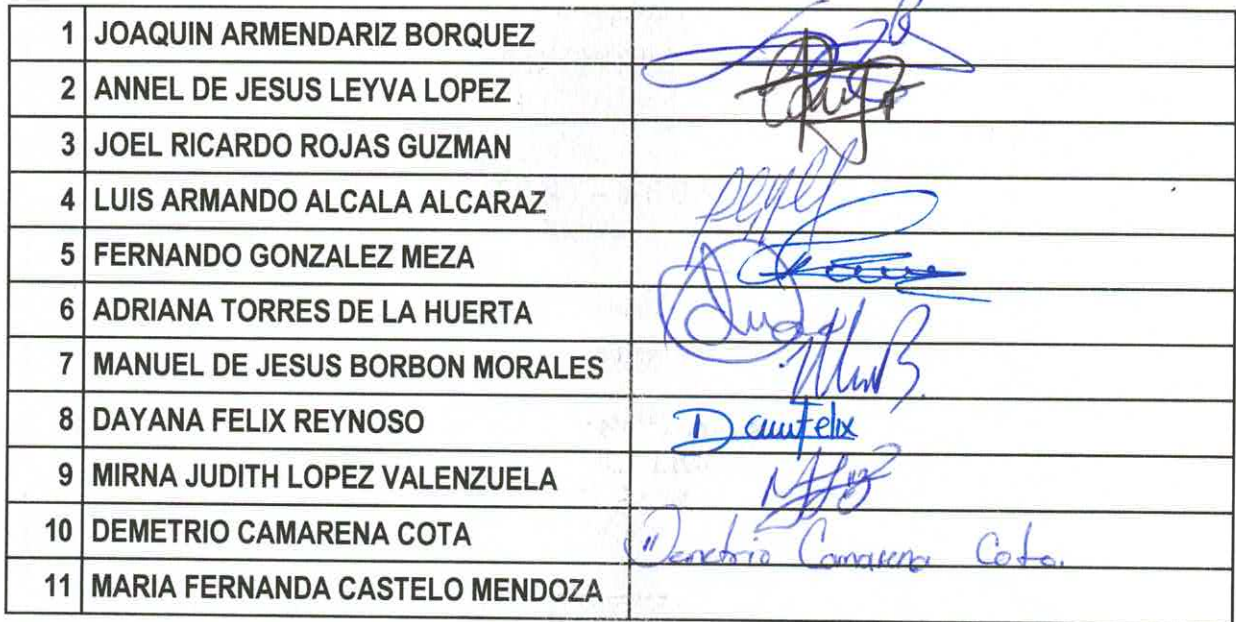 1 JOAQUIN ARMENDARIZ BORQUEZ
2 ANNEL DE JESUS LEYVA LOPEZ
3 JOEL RICARDO ROJAS GUZMAN
4 LUIS ARMANDO ALCALA ALCARAZ
5 FERNANDO GONZALEZ MEZA
6 ADRIANA TORRES DE LA HUERTA
7 MANUEL DE JESUS BORBON MORALES
8 DAYANA FELIX REYNOSO
9 MIRNA JUDITH LOPEZ VALENZUELA
10 DEMETRIO CAMARENA COTA Demetrio Camarena Cota.
11 MARIA FERNANDA CASTELO MENDOZA